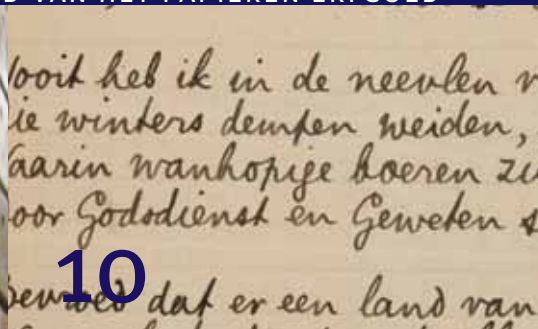 D VAN HET PAPIEREN ERFGOED
ooit heb ik in de neevlen
ie winters dempen weiden,
aarin wanhopige boeren zu
oor Godsdienst en Geweten s
10
dat er een land van